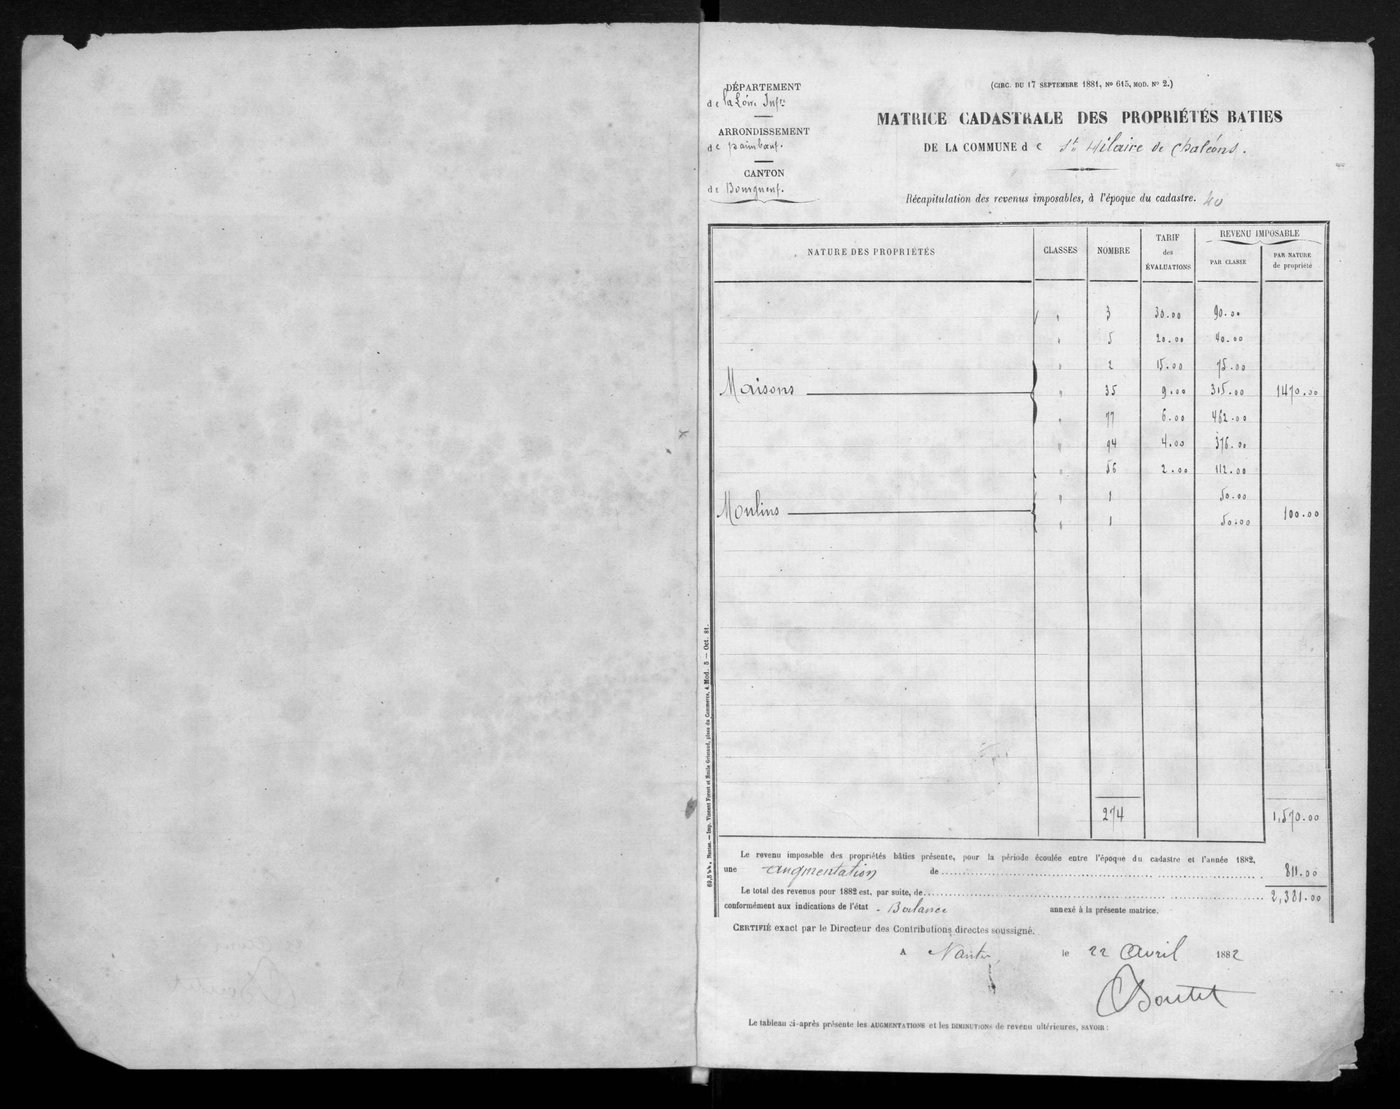 DÉPARTEMENT
de la Loire Infre
ARRONDISSEMENT
de paimbœuf.
CANTON
de Bourgneuf.
(CIRC. DU 17 SEPTEMBRE 1881, No 615, MOD. No 2.)
MATRICE CADASTRALE DES PROPRIÉTÉS BATIES
DE LA COMMUNE de St Hilaire de Chaléons.
Récapitulation des revenus imposables, à l'époque du cadastre.
NATURE DES PROPRIÉTÉS CLASSES NOMBRE TARIF des ÉVALUATIONS REVENU IMPOSABLE PAR CLASSE PAR NATURE de propriété
" 3 30.00 90.00
" 5 20.00 40.00
" 2 15.00 75.00
Maisons " 35 9.00 315.00 1470.00
" 77 6.00 462.00
" 94 4.00 376.00
" 56 2.00 112.00
" 1 50.00
Moulins " 1 50.00 100.00
274 1,570.00
Le revenu imposable des propriétés bâties présente, pour la période écoulée entre l'époque du cadastre et l'année 1882,
une augmentation de 811.00
Le total des revenus pour 1882 est, par suite, de 2,381.00
conformément aux indications de l'état Balance annexé à la présente matrice.
CERTIFIÉ exact par le Directeur des Contributions directes soussigné.
A Nantes, le 22 Avril 1882
Boutet
Le tableau ci-après présente les AUGMENTATIONS et les DIMINUTIONS de revenu ultérieures, SAVOIR :
Nantes. — Imp. Vincent Forest et Émile Grimaud, place du Commerce, 4. Mod. 5 — Oct. 81.